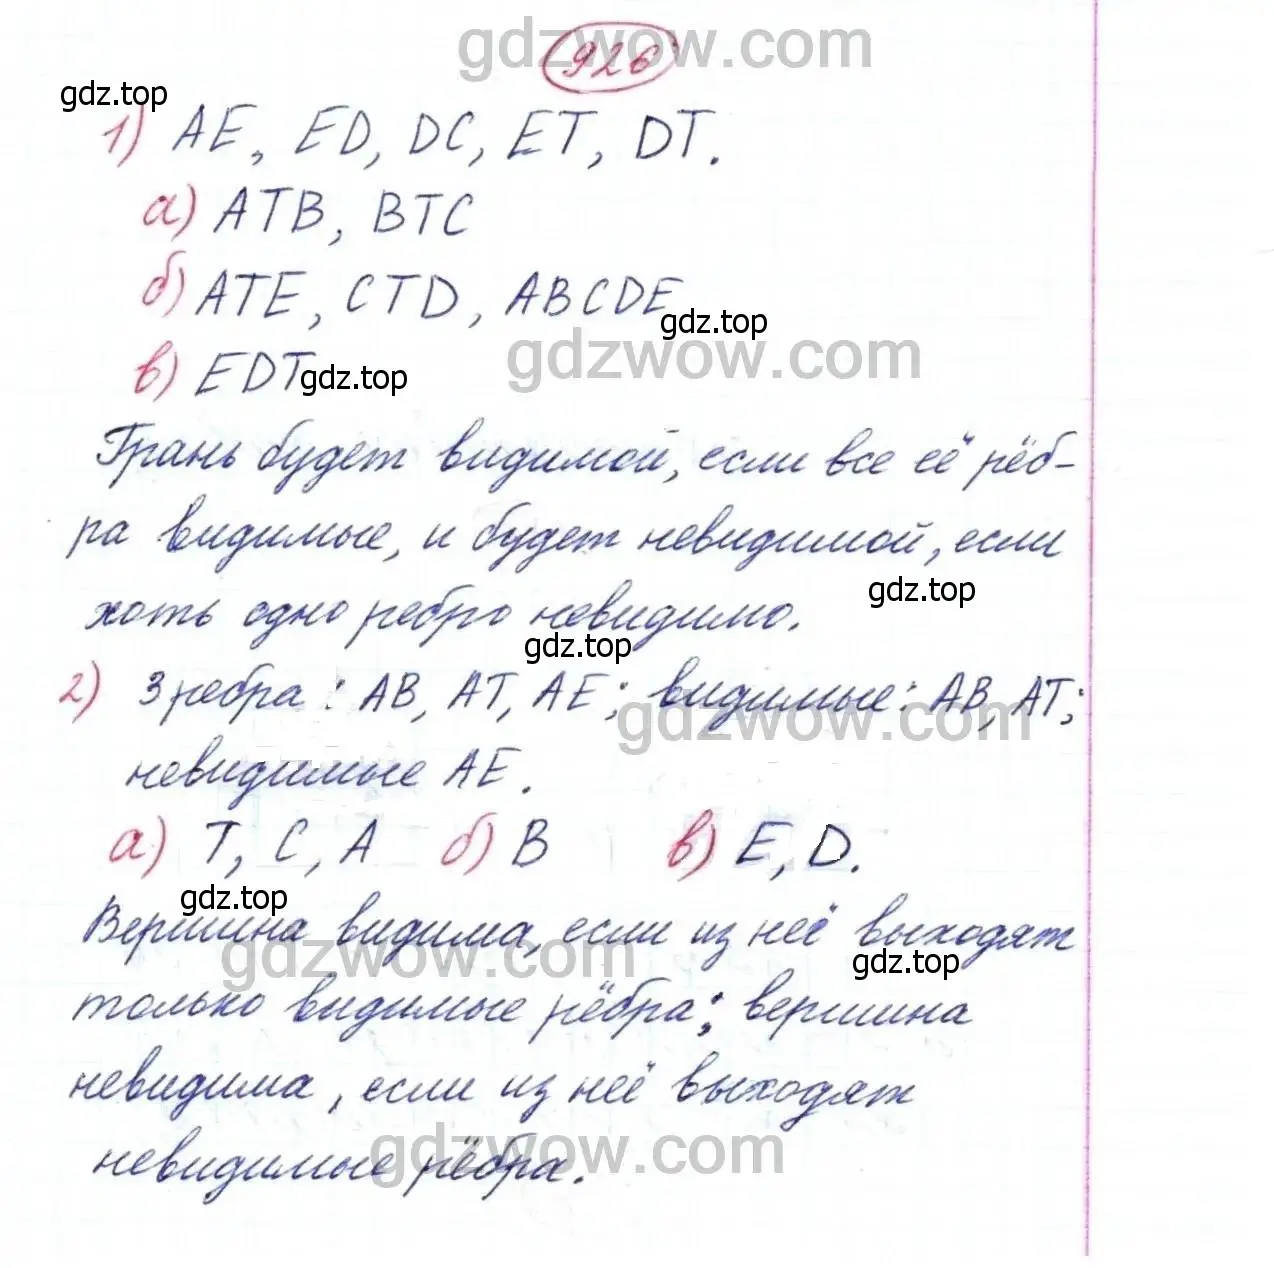 926
1) AE, ED, DC, ET, DT.
а) ATB, BTC
б) ATE, CTD, ABCDE
в) EDT
Грань будет видимой, если все её рёб-
ра видимые, и будет невидимой, если
хоть одно ребро невидимо.
2) 3 ребра: AB, AT, AE; видимые: AB, AT;
невидимые AE.
а) T, C, A б) B в) E, D.
Вершина видима, если из неё выходят
только видимые рёбра; вершина
невидима, если из неё выходят
невидимые рёбра.
gdzwow.com
gdz.top
gdz.top
gdzwow.com
gdz.top
gdz.top
gdz.top
gdzwow.com
gdz.top
gdzwow.com
gdz.top
gdzwow.com